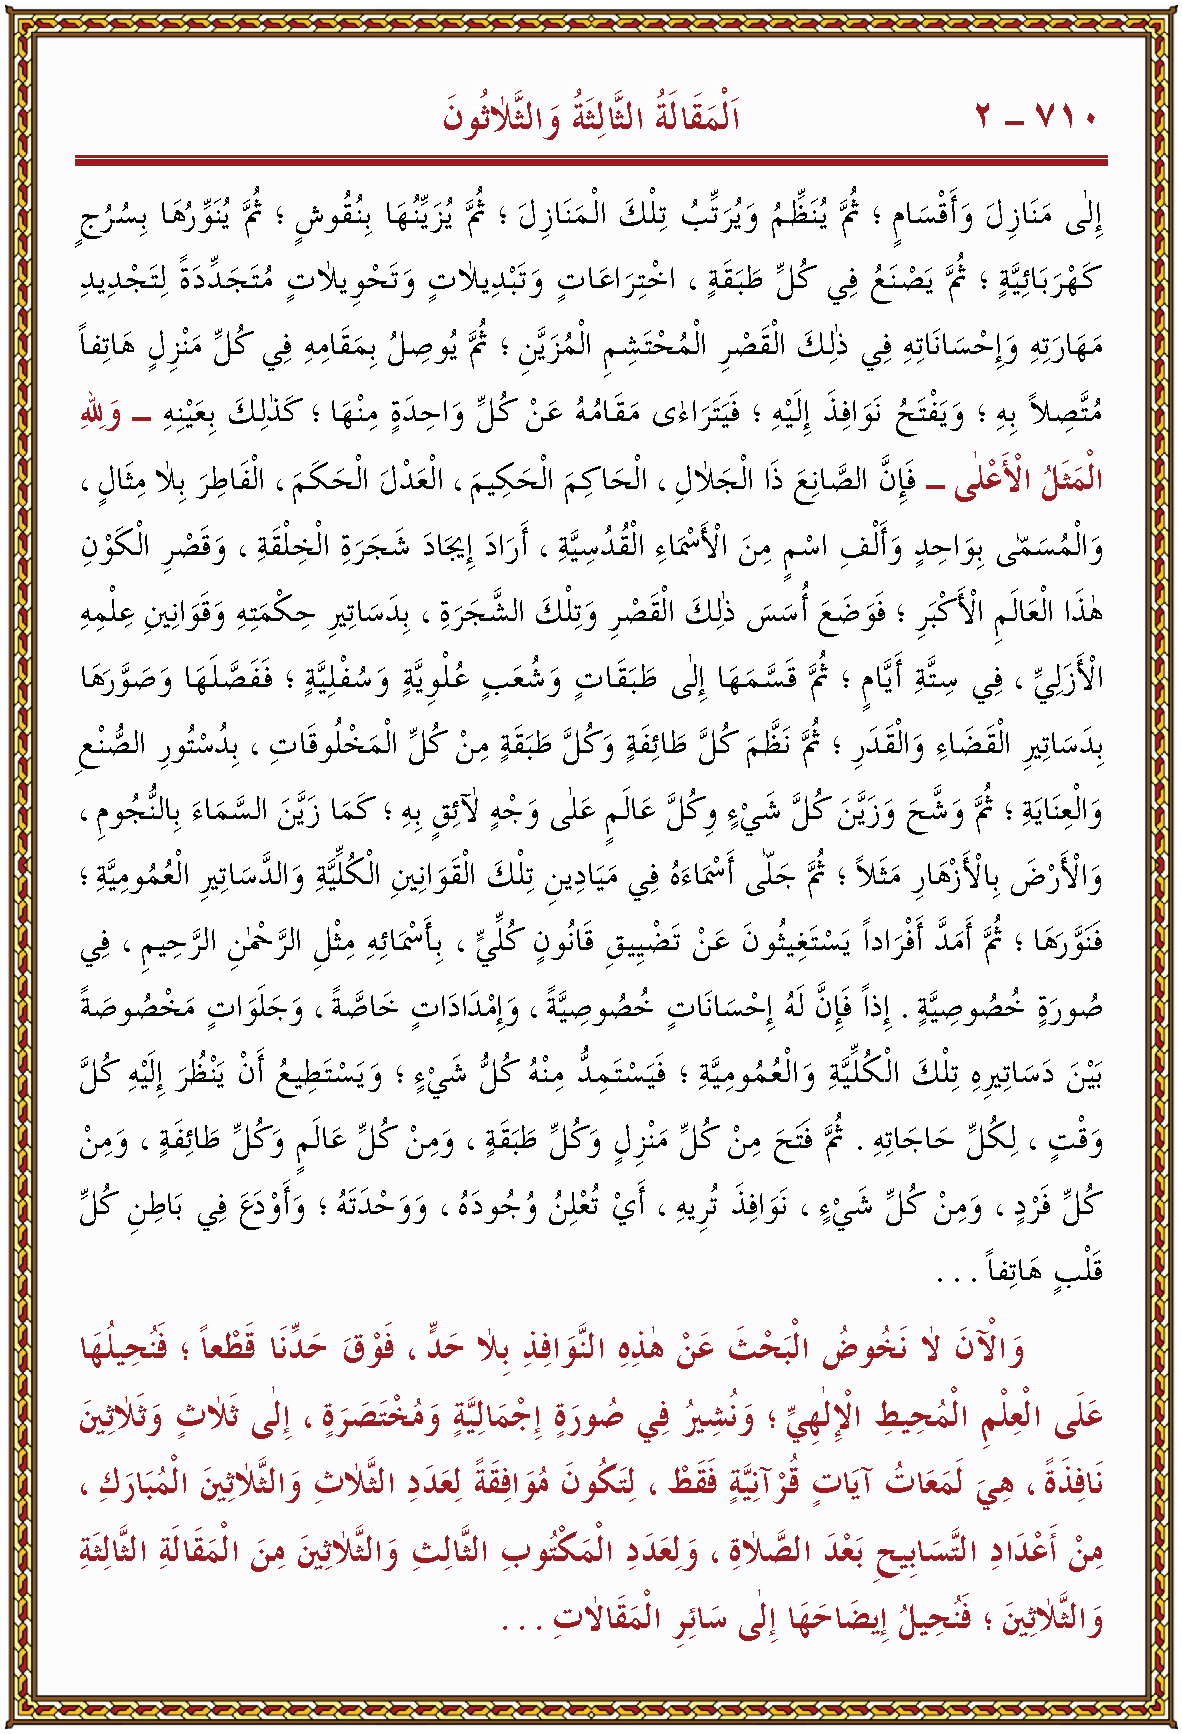 ٧١٠ – ٢ اَلْمَقَالَةُ الثَّالِثَةُ وَالثَّلاٰثُونَ
إِلٰى مَنَازِلَ وَأَقْسَامٍ ؛ ثُمَّ يُنَظِّمُ وَيُرَتِّبُ تِلْكَ الْمَنَازِلَ ؛ ثُمَّ يُزَيِّنُهَا بِنُقُوشٍ ؛ ثُمَّ يُنَوِّرُهَا بِسُرُجٍ
كَهْرَبَائِيَّةٍ ؛ ثُمَّ يَصْنَعُ فِي كُلِّ طَبَقَةٍ ، اخْتِرَاعَاتٍ وَتَبْدِيلاٰتٍ وَتَحْوِيلاٰتٍ مُتَجَدِّدَةً لِتَجْدِيدِ
مَهَارَتِهِ وَإِحْسَانَاتِهِ فِي ذٰلِكَ الْقَصْرِ الْمُحْتَشِمِ الْمُزَيَّنِ ؛ ثُمَّ يُوصِلُ بِمَقَامِهِ فِي كُلِّ مَنْزِلٍ هَاتِفاً
مُتَّصِلاً بِهِ ؛ وَيَفْتَحُ نَوَافِذَ إِلَيْهِ ؛ فَيَتَرَاءٰى مَقَامُهُ عَنْ كُلِّ وَاحِدَةٍ مِنْهَا ؛ كَذٰلِكَ بِعَيْنِهِ – وَلِلّٰهِ
الْمَثَلُ الْأَعْلٰى – فَإِنَّ الصَّانِعَ ذَا الْجَلاٰلِ ، الْحَاكِمَ الْحَكِيمَ ، الْعَدْلَ الْحَكَمَ ، الْفَاطِرَ بِلاٰ مِثَالٍ ،
وَالْمُسَمّٰى بِوَاحِدٍ وَأَلْفِ اسْمٍ مِنَ الْأَسْمَاءِ الْقُدُسِيَّةِ ، أَرَادَ إِيجَادَ شَجَرَةِ الْخِلْقَةِ ، وَقَصْرِ الْكَوْنِ
هٰذَا الْعَالَمِ الْأَكْبَرِ ؛ فَوَضَعَ أُسَسَ ذٰلِكَ الْقَصْرِ وَتِلْكَ الشَّجَرَةِ ، بِدَسَاتِيرِ حِكْمَتِهِ وَقَوَانِينِ عِلْمِهِ
الْأَزَلِيِّ ، فِي سِتَّةِ أَيَّامٍ ؛ ثُمَّ قَسَّمَهَا إِلٰى طَبَقَاتٍ وَشُعَبٍ عُلْوِيَّةٍ وَسُفْلِيَّةٍ ؛ فَفَصَّلَهَا وَصَوَّرَهَا
بِدَسَاتِيرِ الْقَضَاءِ وَالْقَدَرِ ؛ ثُمَّ نَظَّمَ كُلَّ طَائِفَةٍ وَكُلَّ طَبَقَةٍ مِنْ كُلِّ الْمَخْلُوقَاتِ ، بِدُسْتُورِ الصُّنْعِ
وَالْعِنَايَةِ ؛ ثُمَّ وَشَّحَ وَزَيَّنَ كُلَّ شَيْءٍ وِكُلَّ عَالَمٍ عَلٰى وَجْهٍ لاٰئِقٍ بِهِ ؛ كَمَا زَيَّنَ السَّمَاءَ بِالنُّجُومِ ،
وَالْأَرْضَ بِالْأَزْهَارِ مَثَلاً ؛ ثُمَّ جَلّٰى أَسْمَاءَهُ فِي مَيَادِينِ تِلْكَ الْقَوَانِينِ الْكُلِّيَّةِ وَالدَّسَاتِيرِ الْعُمُومِيَّةِ ؛
فَنَوَّرَهَا ؛ ثُمَّ أَمَدَّ أَفْرَاداً يَسْتَغِيثُونَ عَنْ تَضْيِيقِ قَانُونٍ كُلِّيٍّ ، بِأَسْمَائِهِ مِثْلِ الرَّحْمٰنِ الرَّحِيمِ ، فِي
صُورَةٍ خُصُوصِيَّةٍ . إِذاً فَإِنَّ لَهُ إِحْسَانَاتٍ خُصُوصِيَّةً ، وَإِمْدَادَاتٍ خَاصَّةً ، وَجَلَوَاتٍ مَخْصُوصَةً
بَيْنَ دَسَاتِيرِهِ تِلْكَ الْكُلِّيَّةِ وَالْعُمُومِيَّةِ ؛ فَيَسْتَمِدُّ مِنْهُ كُلُّ شَيْءٍ ؛ وَيَسْتَطِيعُ أَنْ يَنْظُرَ إِلَيْهِ كُلَّ
وَقْتٍ ، لِكُلِّ حَاجَاتِهِ . ثُمَّ فَتَحَ مِنْ كُلِّ مَنْزِلٍ وَكُلِّ طَبَقَةٍ ، وَمِنْ كُلِّ عَالَمٍ وَكُلِّ طَائِفَةٍ ، وَمِنْ
كُلِّ فَرْدٍ ، وَمِنْ كُلِّ شَيْءٍ ، نَوَافِذَ تُرِيهِ ، أَيْ تُعْلِنُ وُجُودَهُ ، وَوَحْدَتَهُ ؛ وَأَوْدَعَ فِي بَاطِنِ كُلِّ
قَلْبٍ هَاتِفاً . . .
وَالْآنَ لاٰ نَخُوضُ الْبَحْثَ عَنْ هٰذِهِ النَّوَافِذِ بِلاٰ حَدٍّ ، فَوْقَ حَدِّنَا قَطْعاً ؛ فَنُحِيلُهَا
عَلَى الْعِلْمِ الْمُحِيطِ الْإِلٰهِيِّ ؛ وَنُشِيرُ فِي صُورَةٍ إِجْمَالِيَّةٍ وَمُخْتَصَرَةٍ ، إِلٰى ثَلاٰثٍ وَثَلاٰثِينَ
نَافِذَةً ، هِيَ لَمَعَاتُ آيَاتٍ قُرْآنِيَّةٍ فَقَطْ ، لِتَكُونَ مُوَافِقَةً لِعَدَدِ الثَّلاٰثِ وَالثَّلاٰثِينَ الْمُبَارَكِ ،
مِنْ أَعْدَادِ التَّسَابِيحِ بَعْدَ الصَّلاٰةِ ، وَلِعَدَدِ الْمَكْتُوبِ الثَّالِثِ وَالثَّلاٰثِينَ مِنَ الْمَقَالَةِ الثَّالِثَةِ
وَالثَّلاٰثِينَ ؛ فَنُحِيلُ إِيضَاحَهَا إِلٰى سَائِرِ الْمَقَالاٰتِ . . .